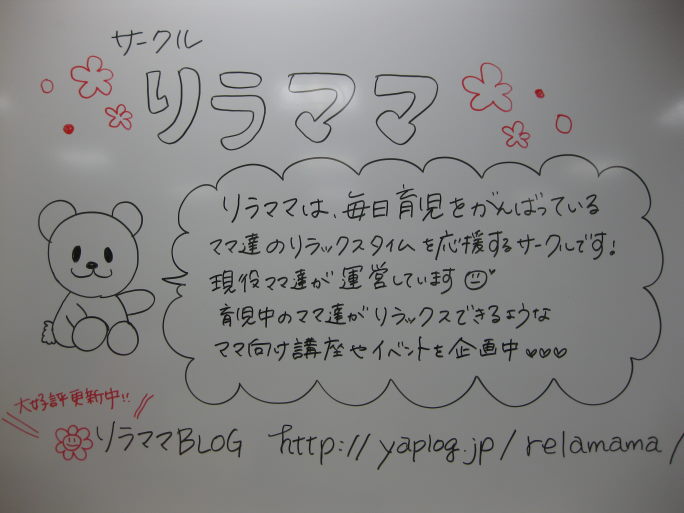 サークル
リラママ
リラママは、毎日育児をがんばっている
ママ達のリラックスタイムを応援するサークルです!
現役ママ達が運営しています
育児中のママ達がリラックスできるような
ママ向け講座やイベントを企画中♥♥♥
大好評更新中!!
リラママBLOG http://yaplog.jp/relamama/